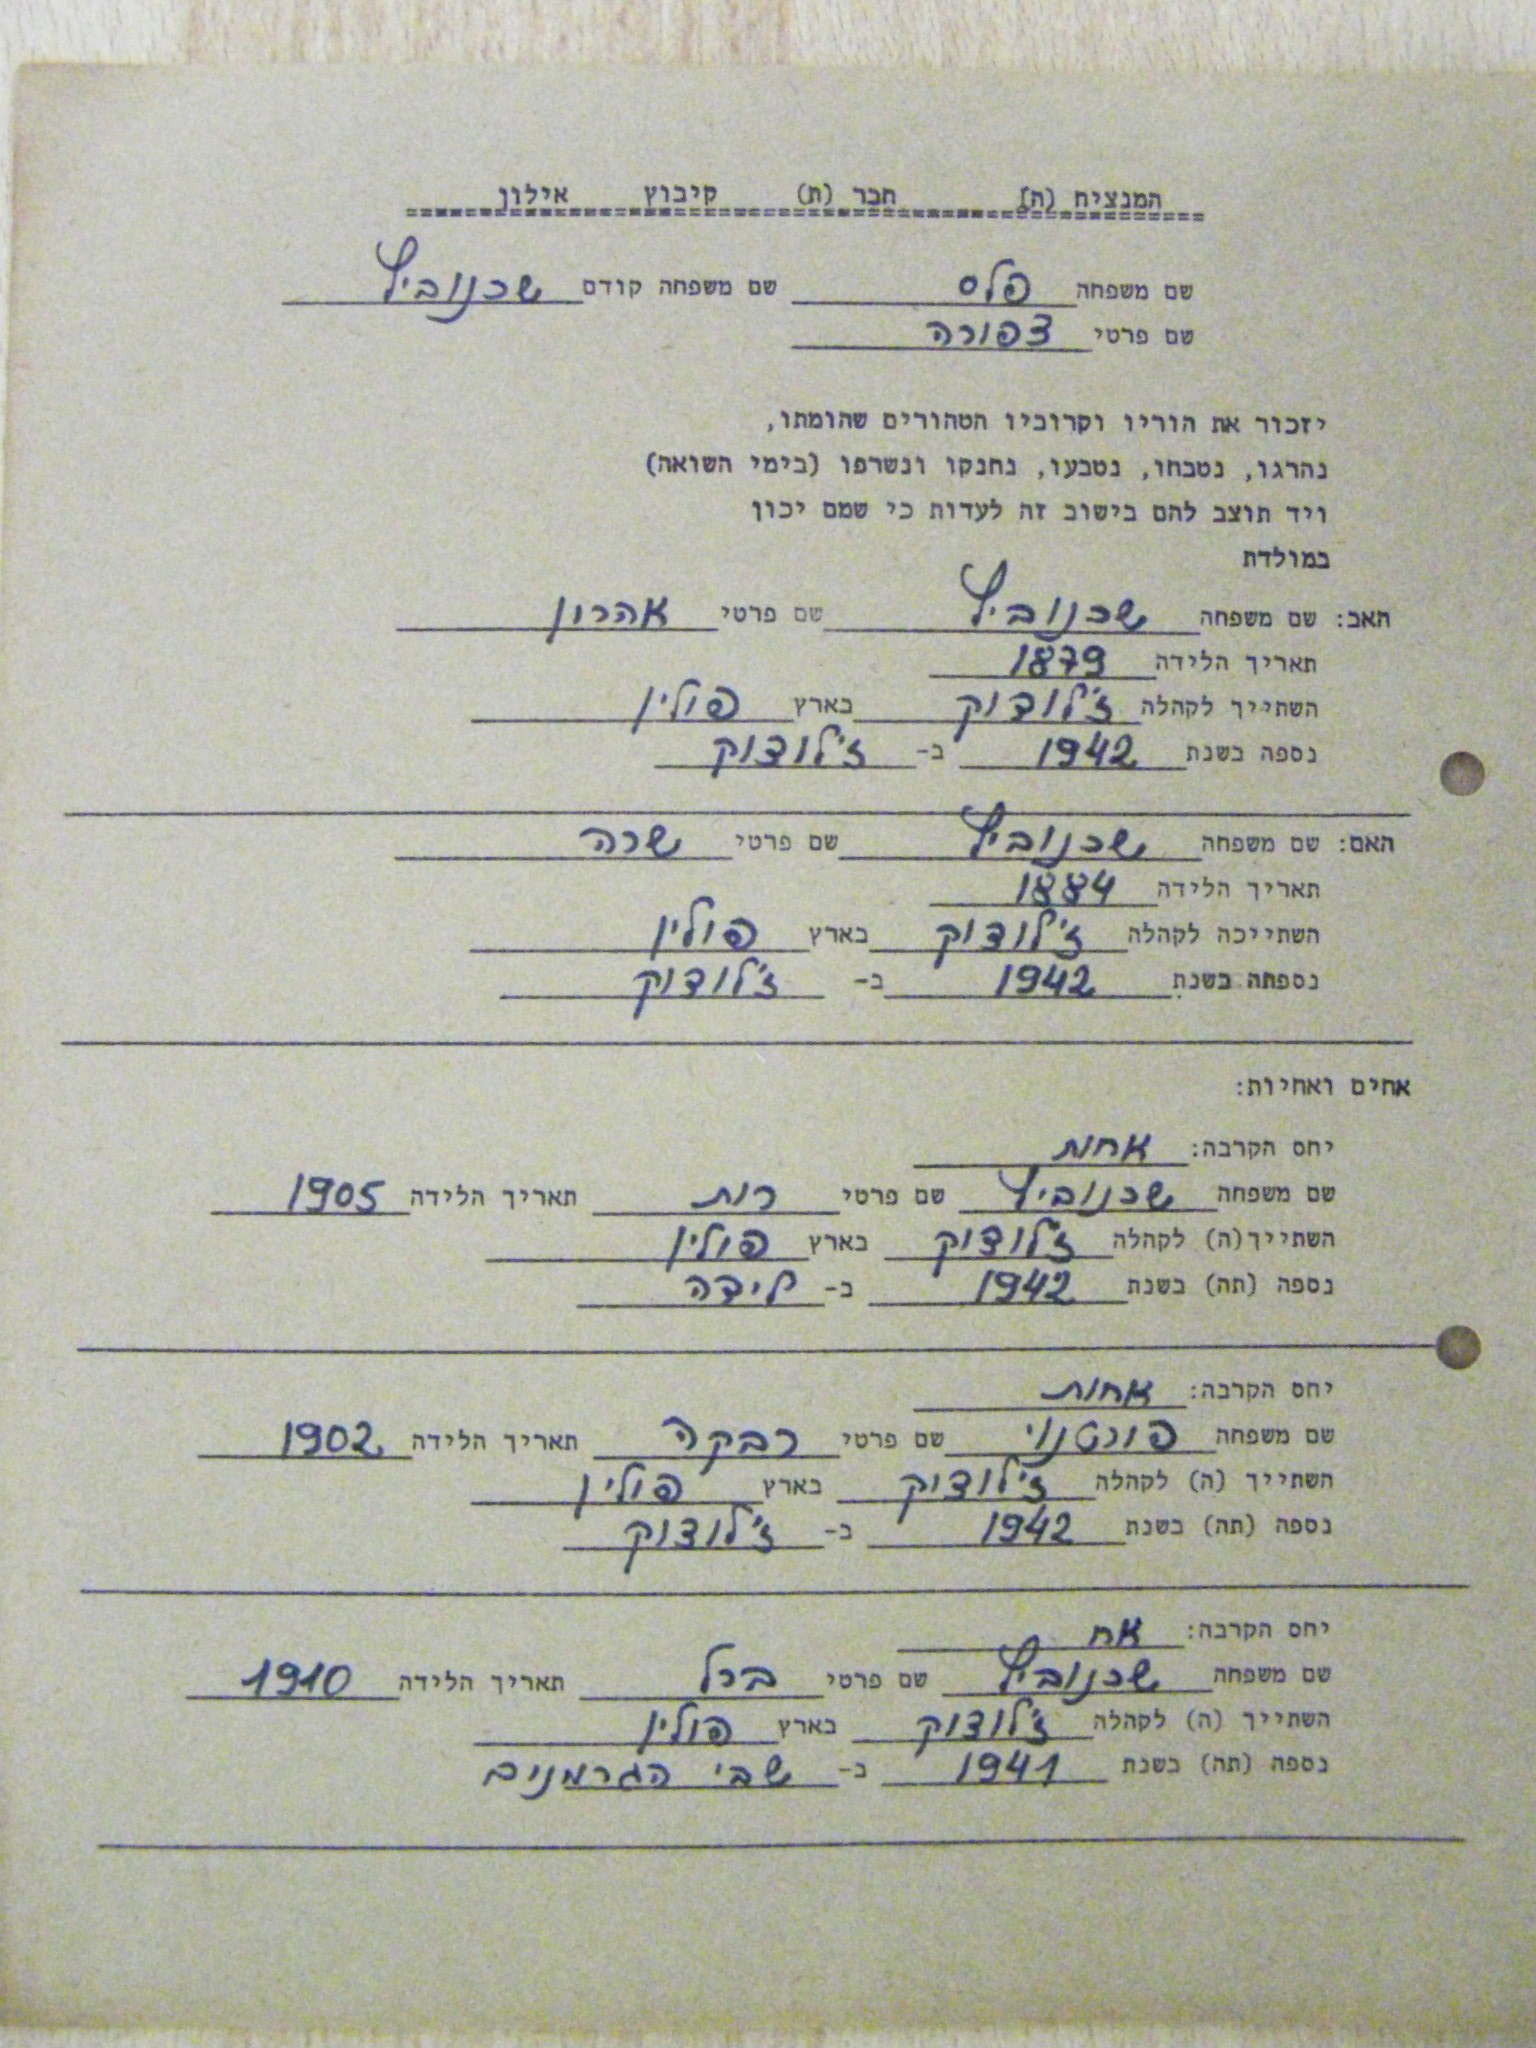 המנציח (ה) חבר (ת) קיבוץ אילון
שם משפחה פלס שם משפחה קודם שכנוביץ
שם פרטי צפורה
יזכור את הוריו וקרוביו הטהורים שהומתו,
נהרגו, נטבחו, נטבעו, נחנקו ונשרפו (בימי השואה)
ויד תוצב להם בישוב זה לעדות כי שמם יכון
במולדת
האב: שם משפחה שכנוביץ שם פרטי אהרון
תאריך הלידה 1879
השתייך לקהלה ז'לודוק בארץ פולין
נספה בשנת 1942 ב- ז'לודוק
האם: שם משפחה שכנוביץ שם פרטי שרה
תאריך הלידה 1884
השתייכה לקהלה ז'לודוק בארץ פולין
נספתה בשנת 1942 ב- ז'לודוק
אחים ואחיות:
יחס הקרבה: אחות
שם משפחה שכנוביץ שם פרטי רות תאריך הלידה 1905
השתייך(ה) לקהלה ז'לודוק בארץ פולין
נספה (תה) בשנת 1942 ב- לידה
יחס הקרבה: אחות
שם משפחה פורטנוי שם פרטי רבקה תאריך הלידה 1902
השתייך (ה) לקהלה ז'לודוק בארץ פולין
נספה (תה) בשנת 1942 ב- ז'לודוק
יחס הקרבה: אח
שם משפחה שכנוביץ שם פרטי ברל תאריך הלידה 1910
השתייך (ה) לקהלה ז'לודוק בארץ פולין
נספה (תה) בשנת 1941 ב- שבי הגרמנים